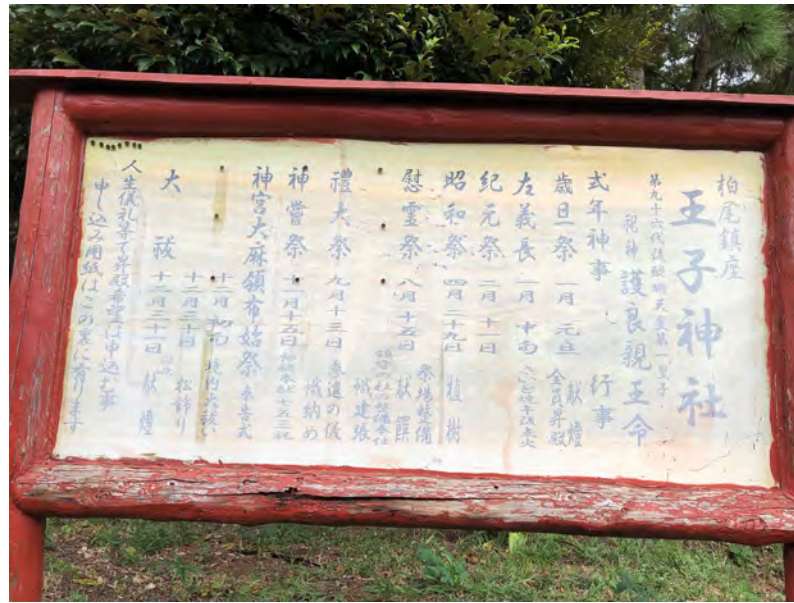 柏尾鎮座
王子神社
第九十六代後醍醐天皇第一皇子
祀神 護良親王命
式年神事 行事
歳旦祭 一月 元旦 献燈
全員昇殿
左義長 一月 中旬
紀元祭 二月十一日
昭和祭 四月二十九日 植樹
祭場整備
慰霊祭 八月十五日 献饌
幟建張
禮大祭 九月十三日 参進の儀
幟納め
神嘗祭 十一月十五日
神宮大麻頒布始祭 奉告式
十二月初旬 境内大祓い
十二月三十日 松飾り
大祓 十二月三十一日 献燈
人生儀礼等で昇殿希望は申込む事
申し込み用紙はこの裏に有ります